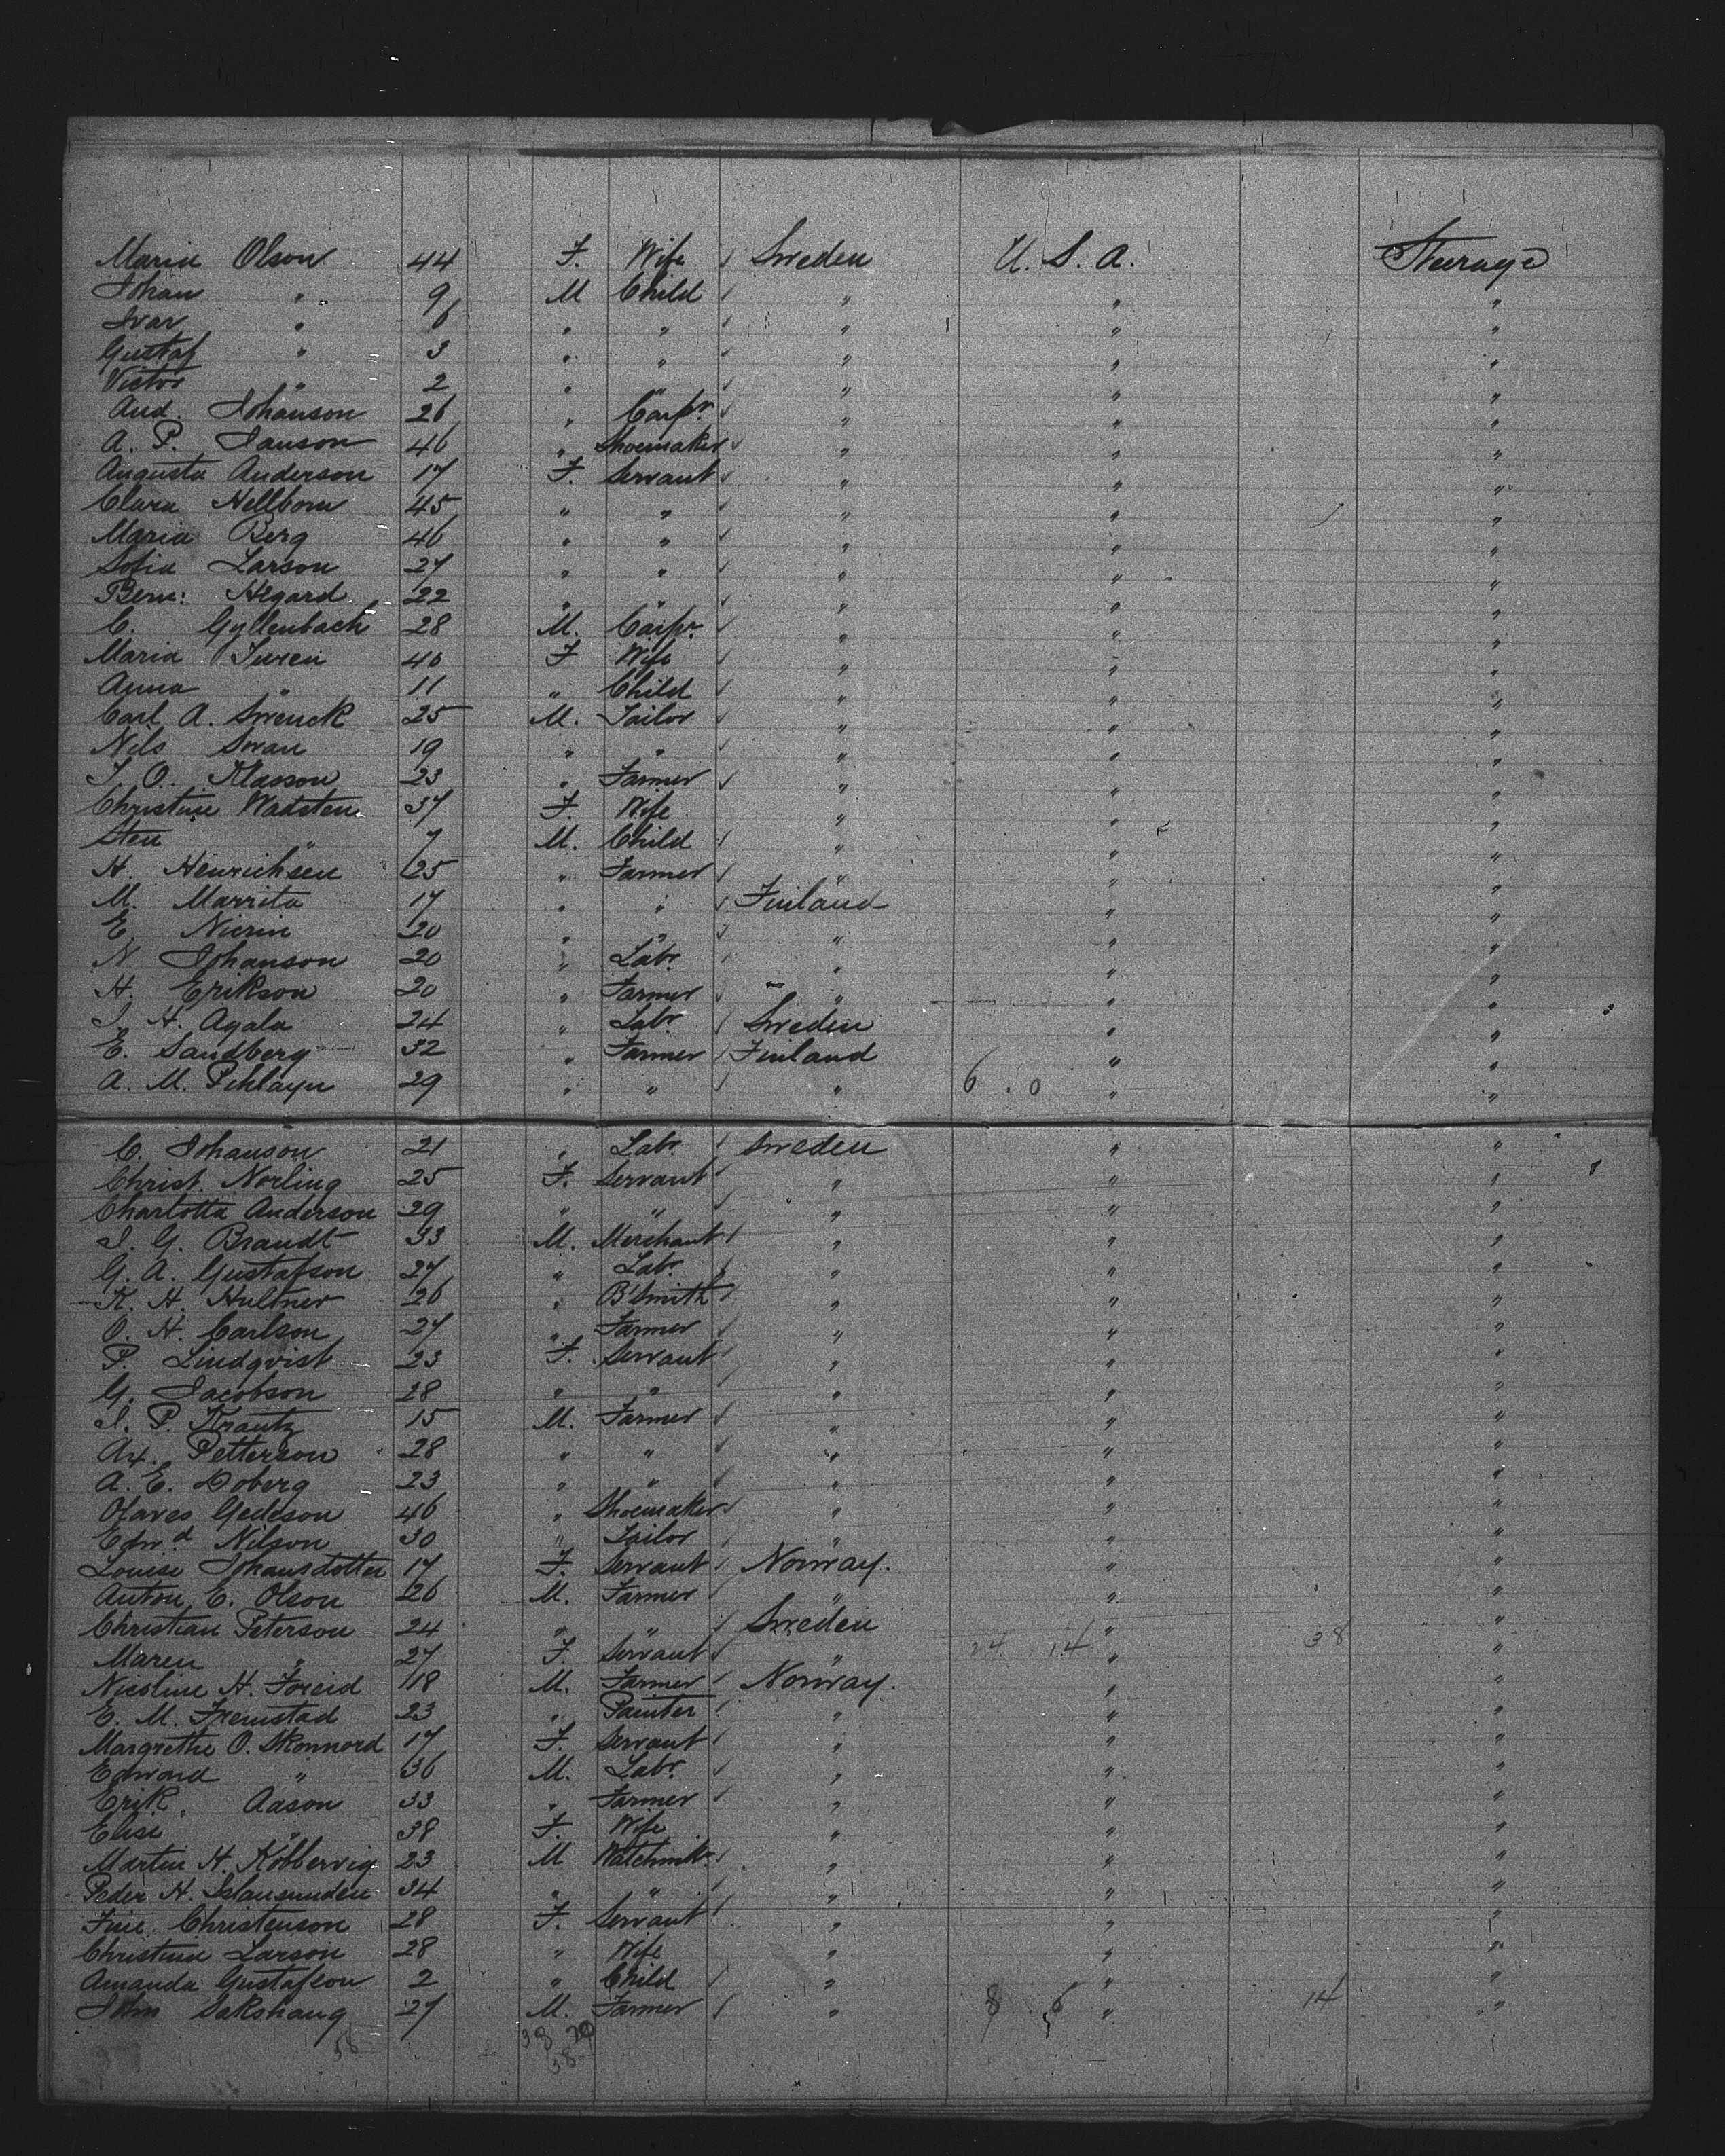 Maria Olson 44 F. Wife Sweden U. S. A. Steerage
Johan " 9 M Child " " "
Ivar " 6 " " " " "
Gustaf " 3 " " " " "
Victor " 2 " " " " "
And. Johanson 26 " Carpr. " " "
A. P. Janson 46 " Shoemaker " " "
Augusta Anderson 17 F. Servant " " "
Clara Hellbom 45 " " " " "
Maria Berg 46 " " " " "
Sofia Larson 27 " " " " "
Hegard 22 " " " " "
C. Gyllenbach 28 M. Carpr. " " "
Maria 40 F Wife " " "
Anna " 11 " Child " " "
Carl A. Swenck 25 M. Tailor " " "
Nils Swan 19 " " " " "
Klasson 23 " Farmer " " "
Christine Wadsten 37 F. Wife " " "
Sten " 7 M. Child " " "
H. Henrichsen 25 " Farmer " " "
M. Marrita 17 " " Finland " "
E. 20 " " " " "
N. Johanson 20 " Labr. " " "
H. Erikson 20 " Farmer " " "
H. Agala 24 " Labr. Sweden " "
E. Sandberg 32 " Farmer Finland " "
A. M. 29 " " " 6 . 0 " "
C. Johanson 21 " Labr. Sweden " "
Christ. Norling 25 F. Servant " " "
Charlotta Anderson 29 " " " " "
J. G. Brandt 33 M. Merchant " " "
G. A. Gustafson 27 " Labr. " " "
K. H. Hultner 26 " B'Smith " " "
O. H. Carlson 27 " Farmer " " "
P. Lindqvist 23 F. Servant " " "
G. Jacobson 28 " " " " "
J. P. Krantz 15 M. Farmer " " "
Ax. Petterson 28 " " " " "
A. E. Doberg 23 " " " " "
Olaves Gedeson 46 " Shoemaker " " "
Edwd Nilson 30 " Tailor " " "
Louise Johansdotter 17 F. Servant Norway. " "
Anton E. Olson 26 M. Farmer " " "
Christian Peterson 24 " " Sweden " "
Maren " 27 F. Servant " 24 14 " 38 "
Nicoline H. Foreid 18 M. Farmer Norway. " "
E. M. Fremstad 23 " Painter " " "
Margrethe O. Skonnord 17 F. Servant " " "
Edward " 36 M. Labr. " " "
Erik Aason 33 " Farmer " " "
Elise " 38 F. Wife " " "
Martin H. Kobbervig 23 M Watchmkr. " " "
Peder H. 34 " " " " "
Christenson 28 F. Servant " " "
Christina Larson 28 " Wife " " "
Amanda Gustafson 2 " Child " " "
John Sakshaug 27 M. Farmer " 8 6 " 14 "
58 38 20
58